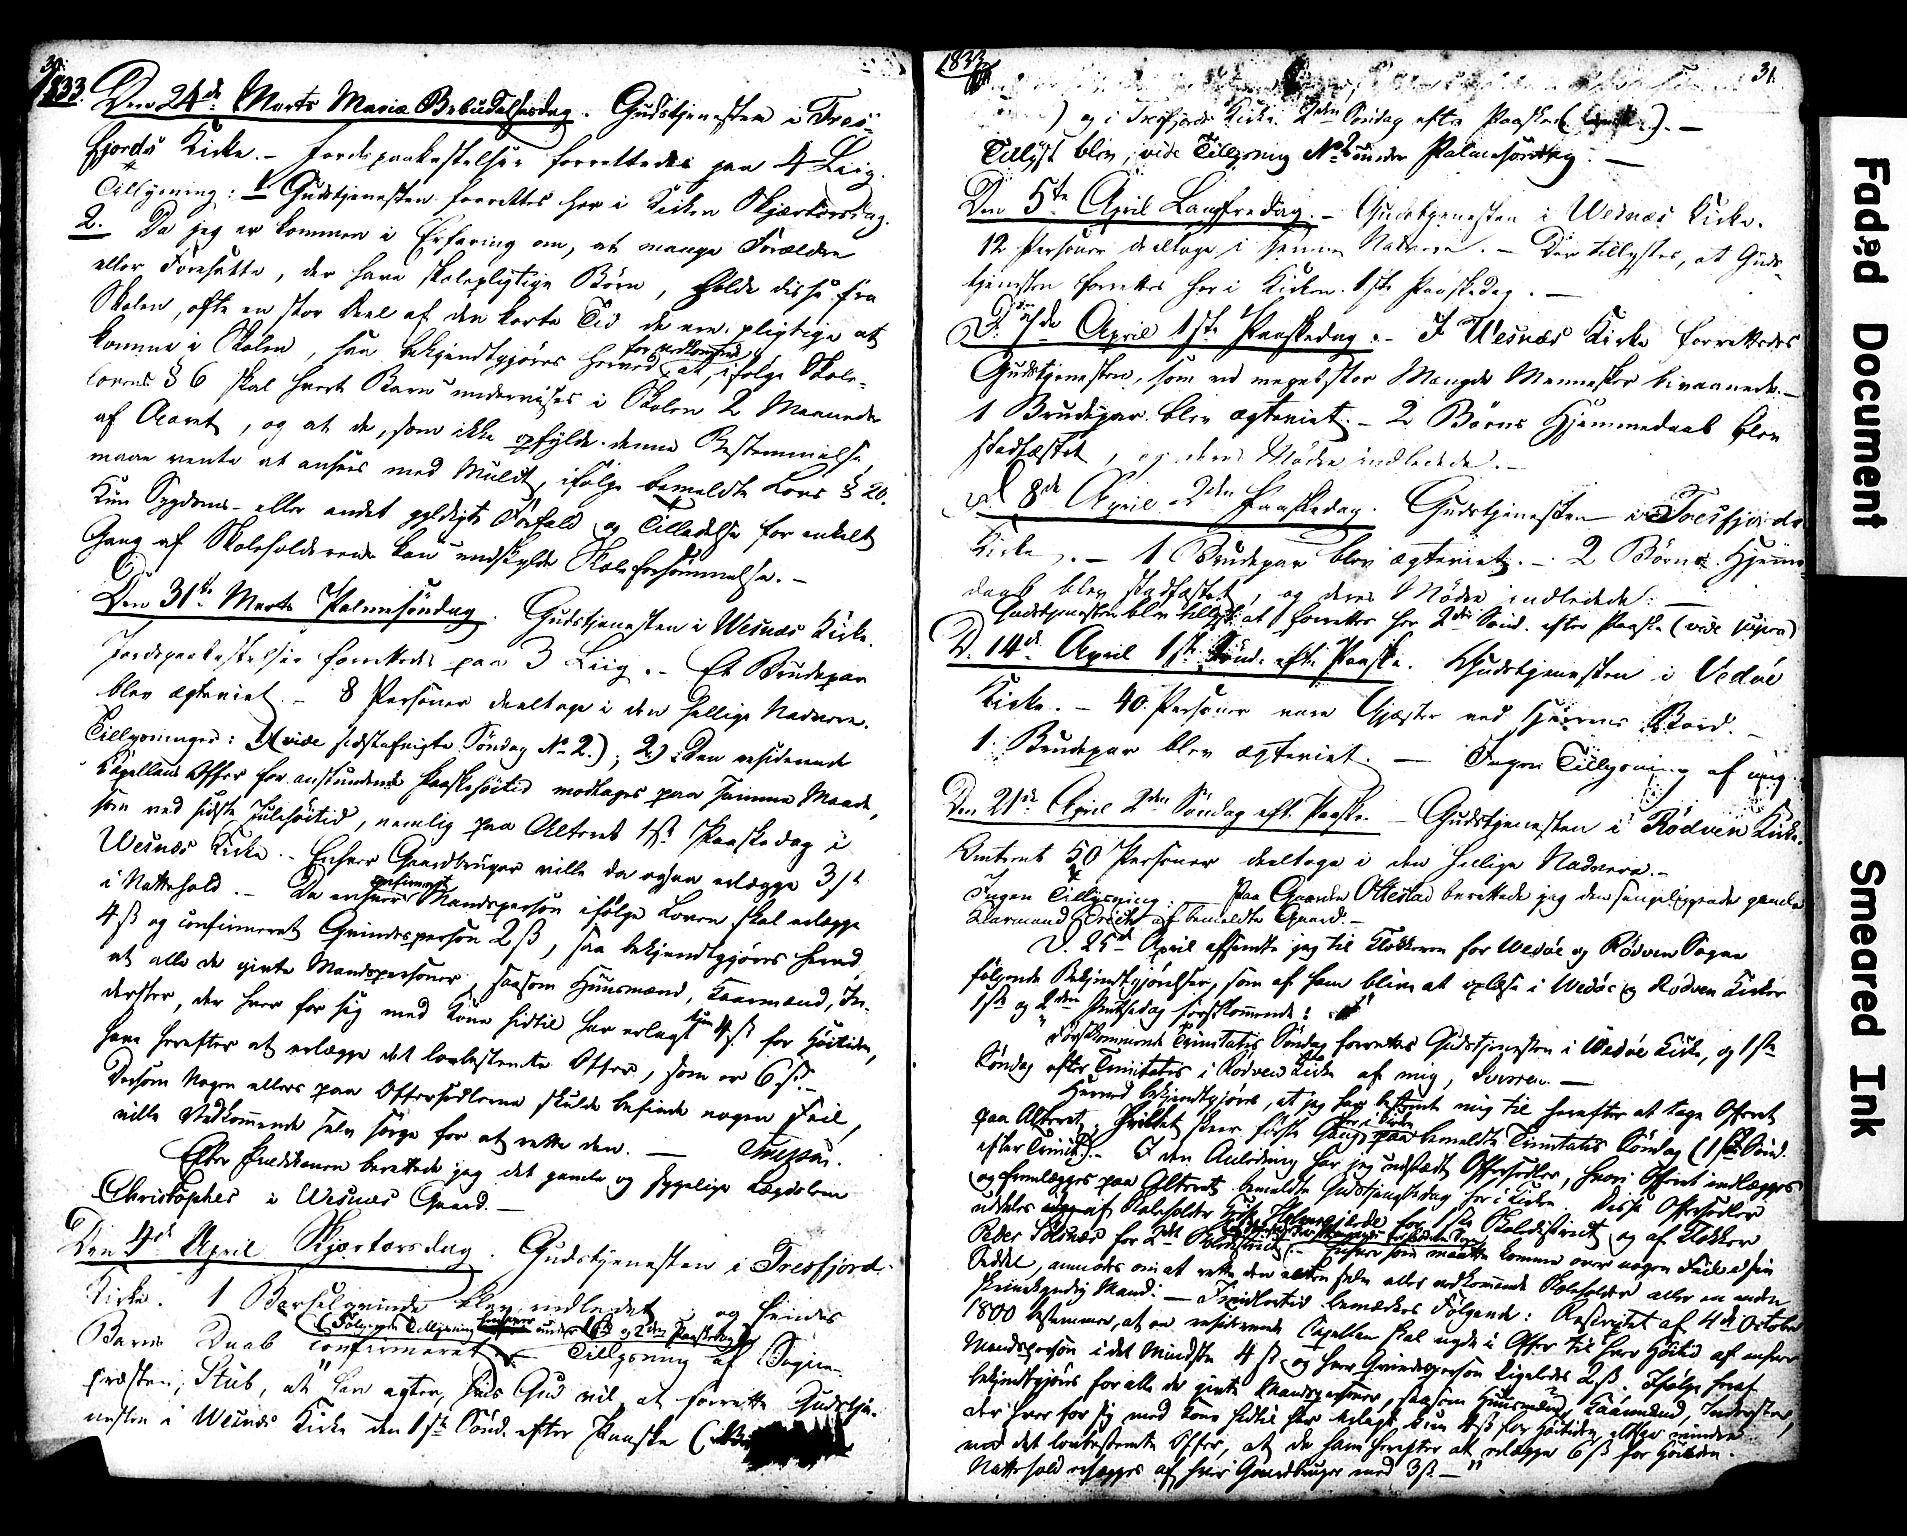 30.
1833. Den 24de Marts Mariæ Bebudelsesdag. Gudstjenesten i Tres-
fjords Kirke. – Jordspaakastelse forrettedes paa 4 Liig.
Tillysning: 1. Gudstjenesten forrettes her i Kirken Skjærtorsdag.
2. Da jeg er kommen i Erfaring om, at mange Forældre
eller Foresatte, der have skolepligtige Børn, holde disse fra
Skolen, ofte en stor Deel af den korte Tid de ere pligtige at
komme i Skolen, saa bekjendtgjøres herved for Vedkommende, at, ifølge Skole-
lovens § 6 skal hvert Barn undervises i Skolen 2 Maaneder
af Aaret, og at de, som ikke opfylde denne Bestemmelse,
maae vente at ansees med Mulct, ifølge bemeldte Lovs § 20.
Kun Sygdoms- eller andet gyldigt Forfald og Tilladelse for enkelt
Gang af Skoleholderen kan undskylde Skoleforsømmelse. –
Den 31te Marts Palmesøndag. Gudstjenesten i Wesnæs Kirke.
Jordspaakastelse forrettedes paa 3 Liig. – Et Brudepar
blev ægteviet. – 8 Personer deeltoge i den hellige Nadvere.
Tillysninger: 1) (vide sidstafvigte Søndag No 2.); 2) Den residerende
Capellans Offer for anstundende Paaskehøitid modtages paa samme Maade,
som ved sidste Julehøitid, nemlig paa Alteret 1ste Paaskedag i
Wesnæs Kirke. – Enhver Gaardbruger ville da ogsaa erlægge 3 ß
i Nattehold. – Da enhver confirmeret Mandsperson ifølge Loven skal erlægge
4 ß og confirmeret Qvindesperson 2 ß, saa bekjendtgjøres herved,
at alle de givte Mandspersoner, saasom Huusmænd, Kaarmænd, In-
derster, der hver for sig med Kone hidtil har erlagt kun 4 ß for Høitiden,
have herefter at erlægge det lovbestemte Offer, som er 6 ß. –
Dersom Nogen ellers paa Offersedlerne skulde befinde nogen Feil,
ville Vedkommende selv sørge for at rette den. –
Efter Prædikenen berettede jeg det gamle og sygelige Lægdslem
Christopher i Wesnæs Gaard. –
Den 4de April Skjærtorsdag. Gudstjenesten i Tresfjord
Kirke. 1 Barselqvinde blev indledet og hendes
Barns Daab confirmeret. – Tillysning af Sogne-
(Følgende Tillysning under 1ste og 2den Paaskedag)
præsten, Stub, at "han agter, hvis Gud vil, at forrette Gudstje-
nesten i Wesnæs Kirke den 1ste Sønd. efter Paaske (
1833
31.
) og i Tresfjords Kirke 2den Søndag efter Paaske ( ). –
Tillyst blev, vide Tillysning No 2 under Palmesøndag. –
Den 5te April Langfredag. – Gudstjenesten i Wesnæs Kirke.
12 Personer deeltoge i Nadvere. – Der tillystes, at Guds-
tjenesten forrettes her i Kirken 1ste Paaskedag. –
D. 7de April 1ste Paaskedag. – I Wesnæs Kirke forrettedes
Gudstjenesten, som en meget stor Mængde Mennesker bivaanede. –
1 Brudepar blev ægteviet. – 2 Børns Hjemmedaab blev
stadfæstet, og deres Mødre indledede. –
D. 8de April 2den Paaskedag. Gudstjenesten i Tresfjords
Kirke. – 1 Brudepar blev ægteviet. – 2 Børns Hjemme-
daab blev stadfæstet, og deres Mødre indledede. –
Gudstjenesten blev tillyst at forrettes her 2den Sønd. efter Paaske (vide supra)
D. 14de April 1ste Sønd. efter Paaske. Gudstjenesten i Vedøe
Kirke. – 40 Personer vare Gjæster ved Herrens Bord. –
1 Brudepar blev ægteviet. – Ingen Tillysning af mig.
Den 21de April 2den Søndag eft. Paaske. – Gudstjenesten i Rødven Kirke.
Omtrent 50 Personer deeltoge i den hellige Nadvere. –
Ingen Tillysning. – Paa Gaarden berettede jeg den sengeliggende gamle
Kaarmand af bemeldte Gaard. –
D. 25de April afsendte jeg til Klokkeren for Wedøe og Rødven Sogne
følgende Bekjendtgjørelser, som af ham blive at oplæse i Wedøe og Rødven Kirker
1ste og 2den Pintsedag førstkommende:
"Førstkommende Trinitatis Søndag forrettes Gudstjenesten i Wedøe Kirke, og 1ste
Søndag efter Trinitatis i Rødven Kirke af mig,
Herved bekjendtgjøres, at jeg har bestemt mig til herefter at tage Offeret
paa Alteret, hvilket skeer første Gang her i Kirken paa bemeldte Trinitatis Søndag (1ste Sønd.
efter Trinit.). – I den Anledning har jeg udstædt Offersedler, hvori Offeret indlægges
og fremlægges paa Alteret bemeldte Gudstjenestedag her i Kirken. Disse Offersedler
uddeles af Skoleholder for 1ste Skoledistrict, og af Klokker
Peder Solsnæs for 2det Skoledistrict. – Enhver som maatte komme over nogen Feil i sin
Seddel, anmodes om at rette den enten selv eller vedkommende Skoleholder eller en anden
skrivekyndig Mand. – Imidlertid bemærkes Følgende: Rescriptet af 4de October
1800 bestemmer, at en residerende Capellan skal nyde i Offer til hver Høitid af enhver
Mandsperson i det Mindste 4 ß og hver Qvindesperson ligeledes 2 ß. Ifølge heraf
bekjendtgjøres for alle de givte Mandspersoner, saasom Huusmænd, Kaarmænd, Inderster,
der hver for sig med Kone hidtil har erlagt kun 4 ß for Høitiden, eller mindre
end det lovbestemte Offer, at de have herefter at erlægge 6 ß for Høitiden.
Nattehold erlægges af hver Gaardbruger med 3 ß. – "
Faded Document
Smeared Ink